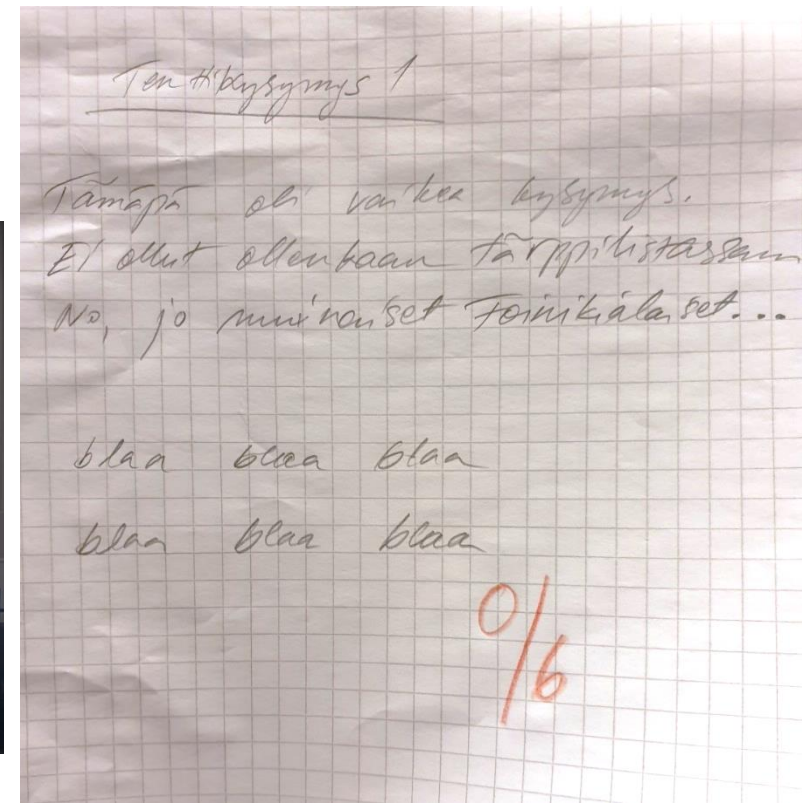 Tenttikysymys 1
Tämäpä oli vaikea kysymys.
Ei ollut ollenkaan tärppilistassani
No, jo muinaiset Foinikialaiset...
blaa blaa blaa
blaa blaa blaa
0/6